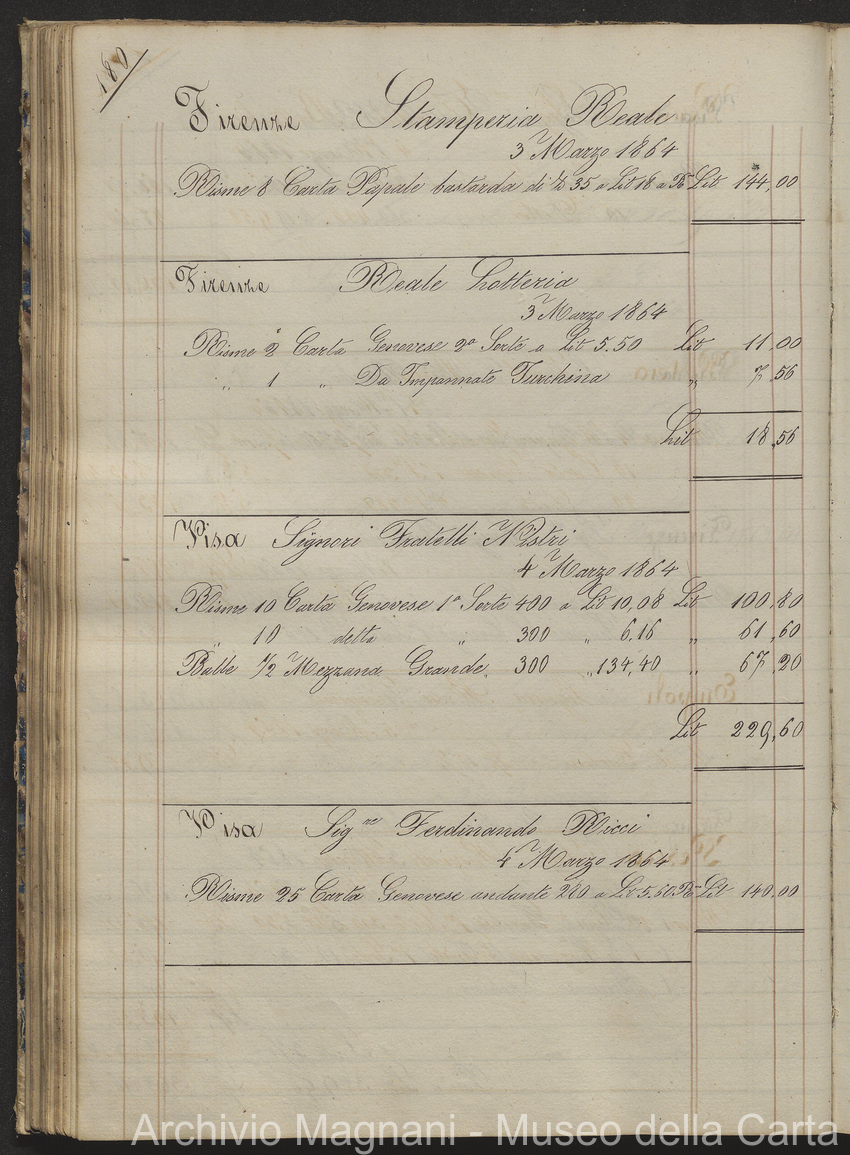 180
Firenze Stamperia Reale
3 Marzo 1864
Risme 8 Carta Papale bastarda di 35 a Lit 18 a Rª Lit 144,00
Firenze Reale Lotteria
3 Marzo 1864
Risme 2 Carta Genovese 2ª Sorte a Lit 5.50 Lit 11,00
„ 1 „ Da Impannate Turchina „ 7,56
Lit 18,56
Pisa Signori Fratelli Nistri
4 Marzo 1864
Risme 10 Carta Genovese 1ª Sorte 400 a Lit 10,08 Lit 100,80
„ 10 detta „ 300 „ 6,16 „ 61,60
Balle 1/2 Mezzana Grande 300 „ 134,40 „ 67,20
Lit 229,60
Pisa Sigre Ferdinando Ricci
4 Marzo 1864
Risme 25 Carta Genovese andante 200 a Lit 5.60 Rª Lit 140,00
Archivio Magnani - Museo della Carta